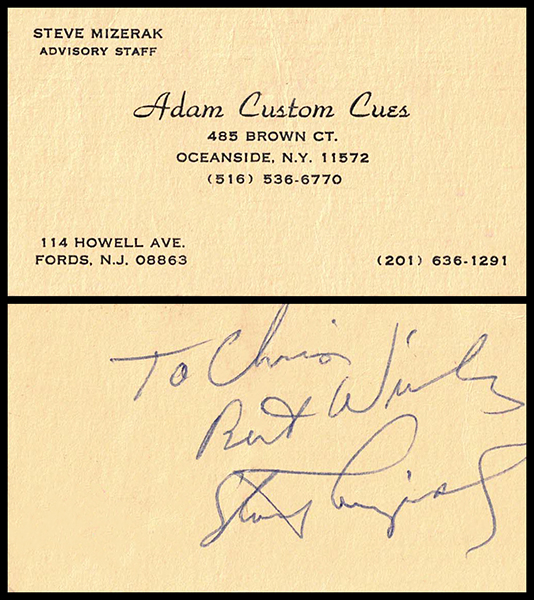 STEVE MIZERAK
ADVISORY STAFF
Adam Custom Cues
485 BROWN CT.
OCEANSIDE, N.Y. 11572
(516) 536-6770
114 HOWELL AVE.
FORDS, N.J. 08863
(201) 636-1291
To Chris
Best Wishes
Steve Mizerak